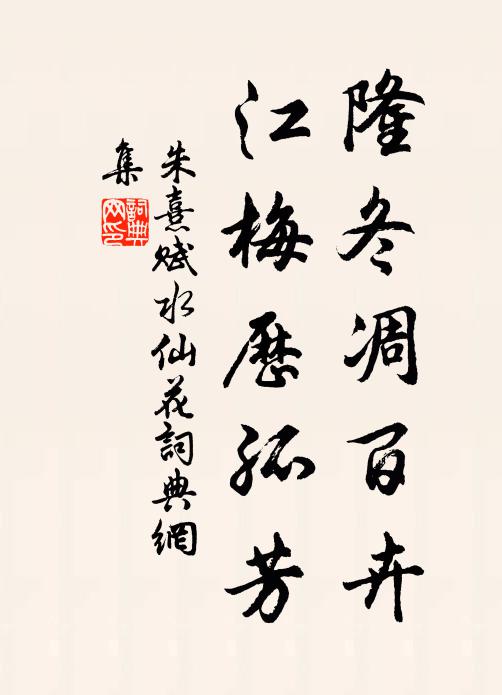 隆冬凋百卉
江梅歷孤芳
朱熹賦水仙花詞典網
集
詞典
网印